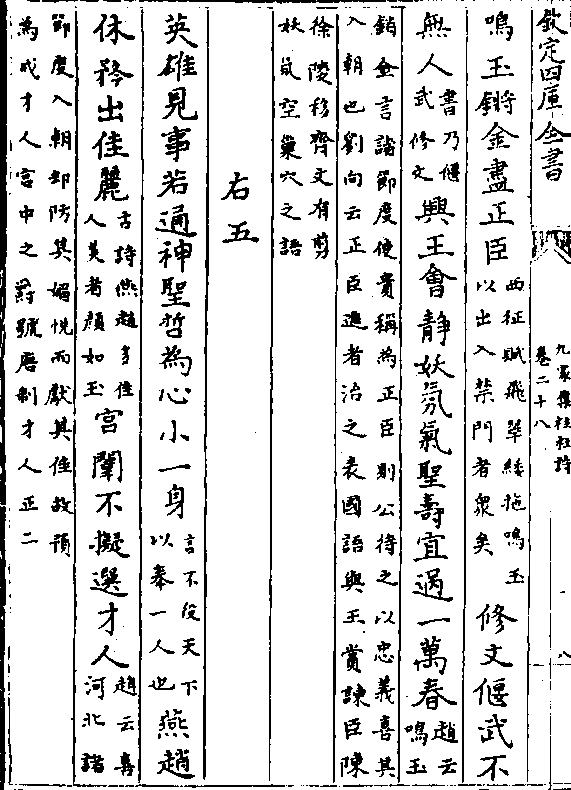 欽定四庫全書
九家集注杜詩
卷二十八
八
鳴玉鏘金盡正臣西征賦飛翠緌拖鳴玉以出入禁門者衆矣修文偃武不
無人書乃偃武修文興王會靜妖氛氣聖壽宜過一萬春趙云鳴玉
鏘金言諸節度使貴稱為正臣則公待之以忠義喜其
入朝也劉向云正臣進者治之表國語興王賞諫臣陳
徐陵移齊文有剪
妖氛空巢穴之語
右五
英雄見事若通神聖哲為心小一身言不役天下以奉一人也燕趙
休矜出佳麗古詩燕趙多佳人美者顔如玉宮闈不擬選才人趙云喜河北諸
節度入朝却防其媚悅而獻其佳故預
為戒才人宮中之爵號唐制才人正二